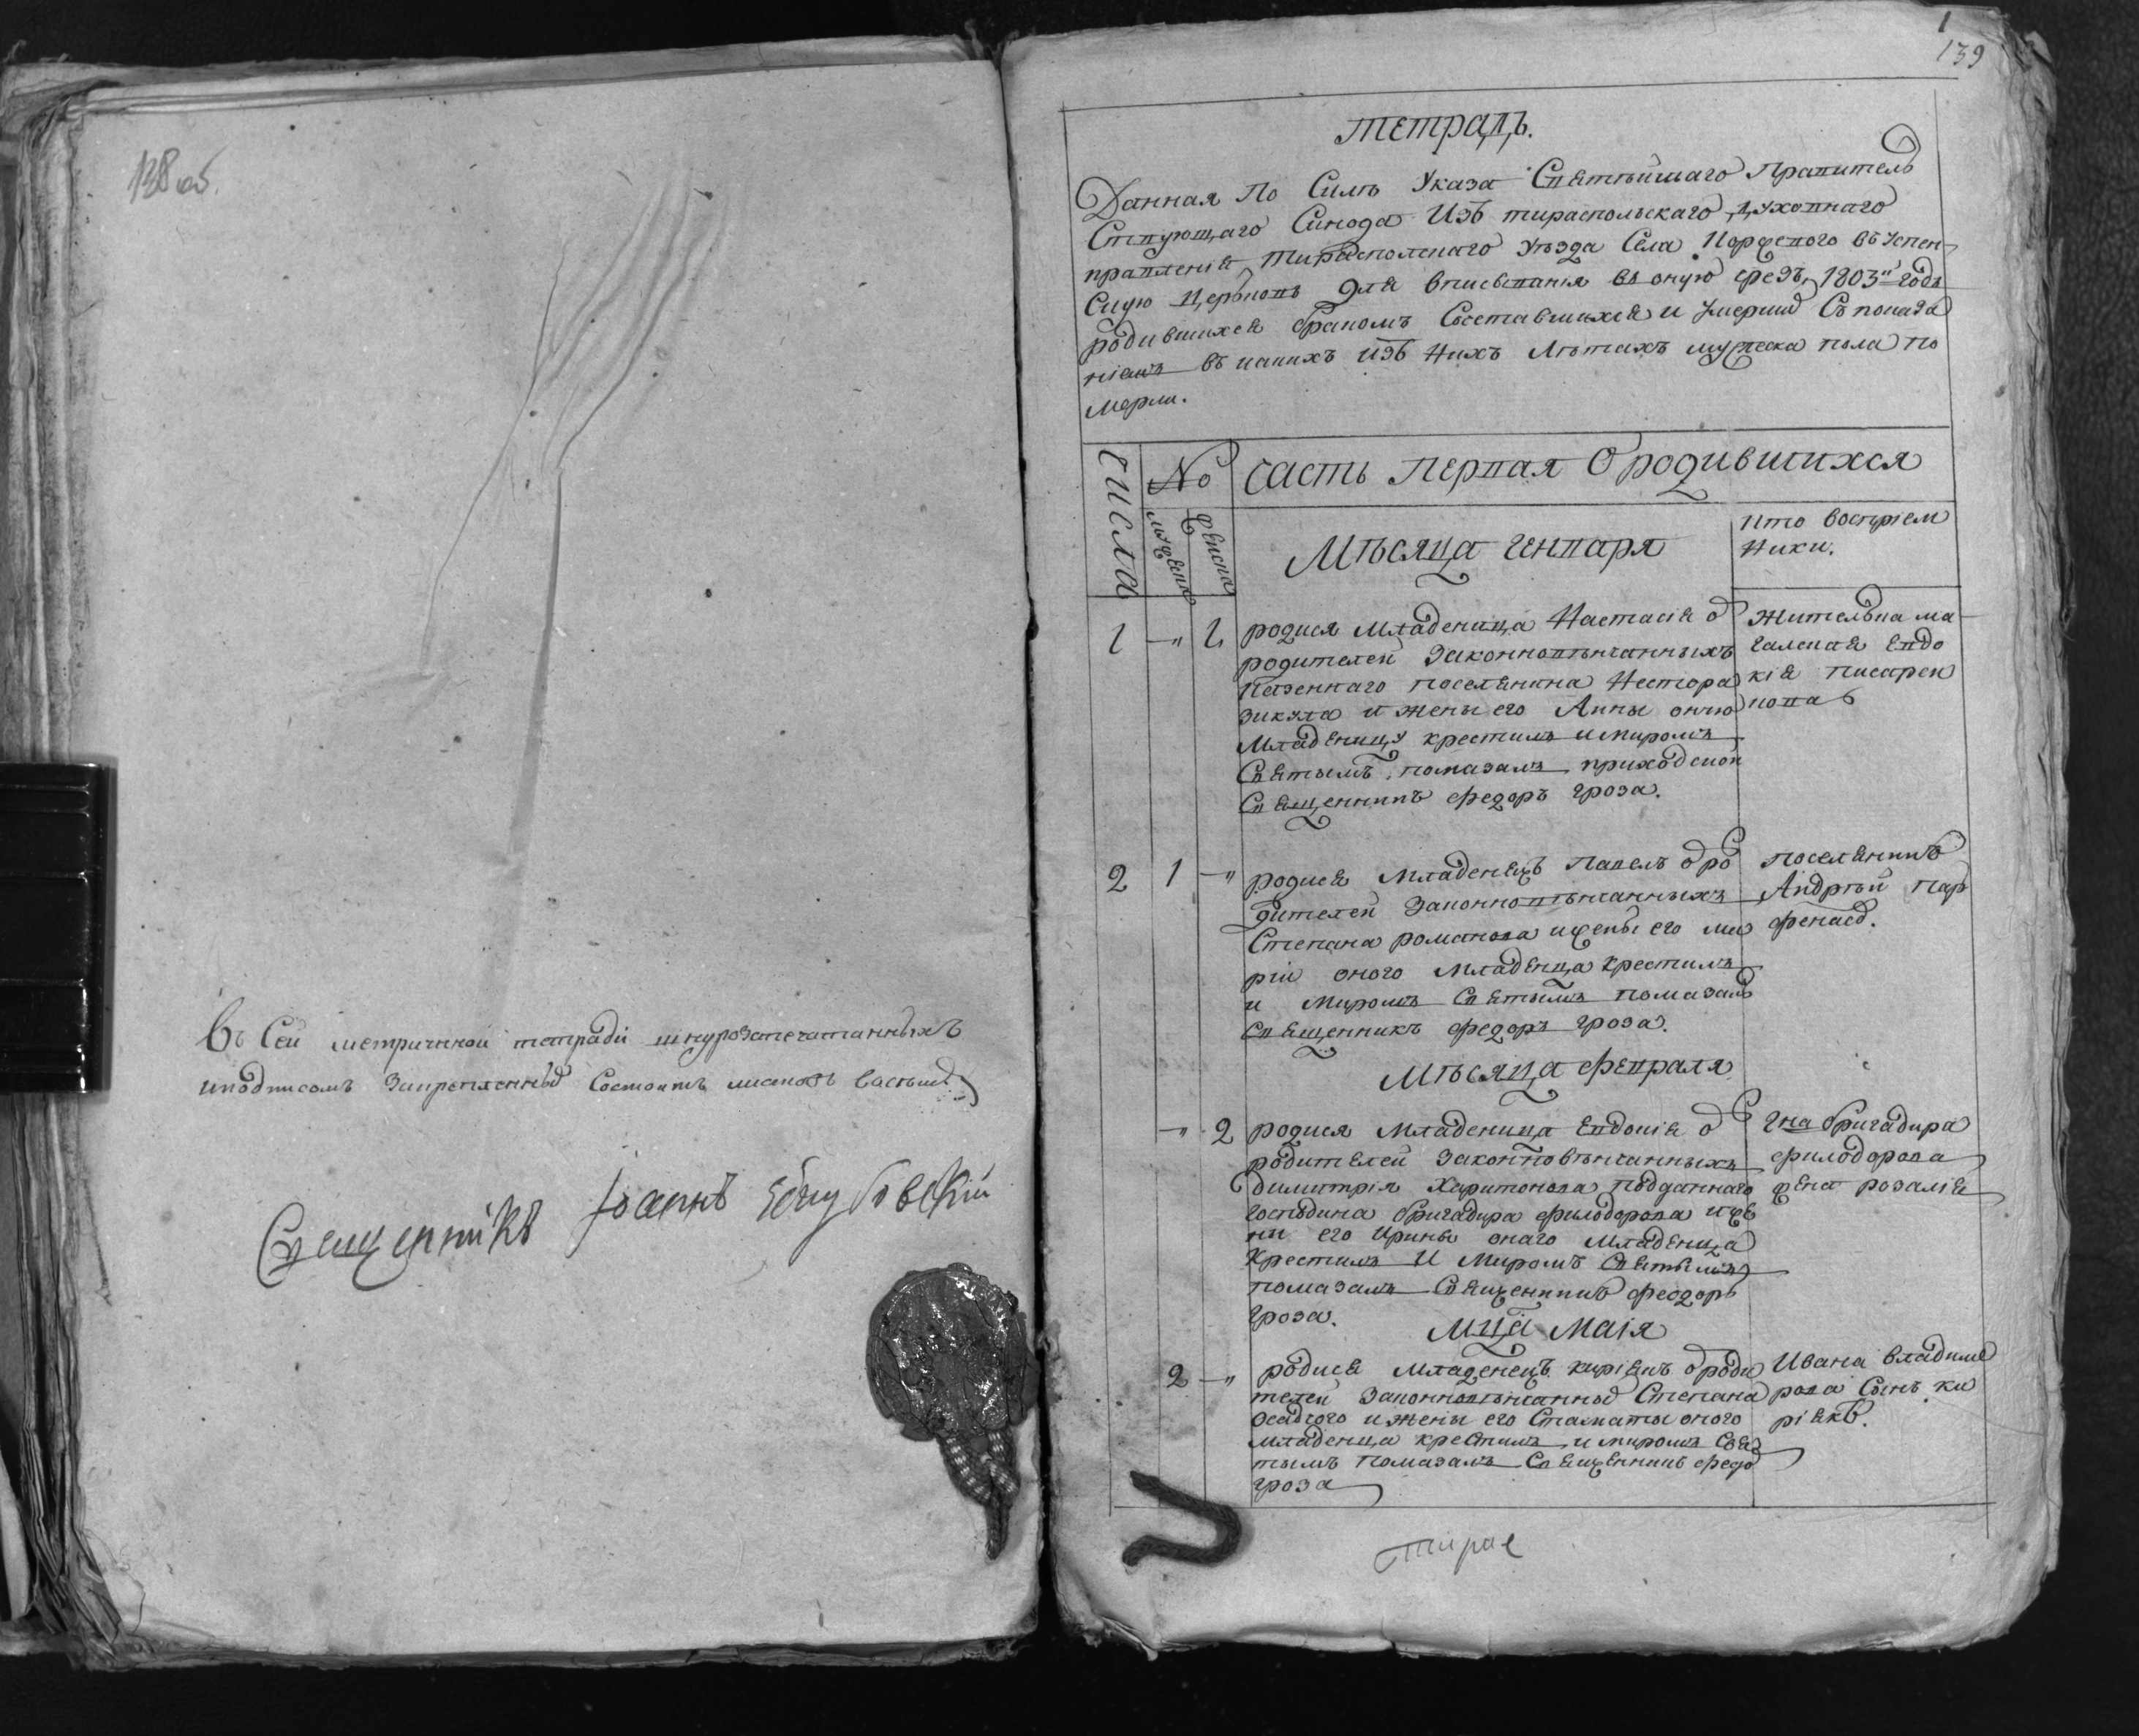 138 об.
Въ Сей метричной тетради шнурозапечатанныхъ
иподписомъ Закрепленныхъ Состоитъ листовъ восьмь
Священникъ Іоаннъ
1
139
Тетрадь.
Данная По Силѣ Указа Святѣйшаго Правитель
Ствующаго Синода Изъ тираспольскаго Духовнаго
правленія Тирасполскаго Уѣзда Села в Успен
Скую Церковь Для вписыванія въ оную чрезъ 1803й годъ
родившихся бракомъ Сосетавшихся и умерших Съ показа
ніемъ въ какихъ изъ Нихъ Лѣтахъ мужеска пола по
мерли.
Числа
№
Часть Первая О родившихся
мужеска
женска
Мѣсяца Генваря
кто восприем
ники.
1 —„ 1 родися Младеница Настасія о
родителей Законновѣнчанныхъ
казеннаго поселянина Нестора
Зикула и жены его Анны оную
Младеницу крестилъ и миромъ
Святымъ помазалъ приходской
Священникъ Федоръ Гроза.
Жителька ма
галская Евдо
кія писарен
кова
2 1 —„ родися Младенецъ Павелъ о ро
дителей Законновѣнчанныхъ
Степана романова и жены его ма
ріи оного Младенца Крестилъ
и Миромъ Святымъ помазалъ
Священникъ Федоръ Гроза.
поселянинъ
Андрѣй пар
Мѣсяца Февраля
—„ 2 родися Младеница Евдокія о
родителей Законновѣнчанныхъ
Димитрія Харитонова подданнаго
Господина бригадира Филодорова и же
ни его Ирины онаго Младенца
Крестилъ И Миромъ Святымъ
помазалъ Священникъ Феодоръ
Гроза.
Гна бригадира
Филодорова
жена розалія
Мца Маія
2 —„ родися Младенецъ киріякъ о роди
телей Законновѣнчанных Степана
осадчого и жены его Стаматы оного
младенца крестилъ и миромъ Свя
тымъ помазалъ Священникъ Федо
Гроза
Ивана владиме
рова Сынъ ки
ріякъ.
Тирас